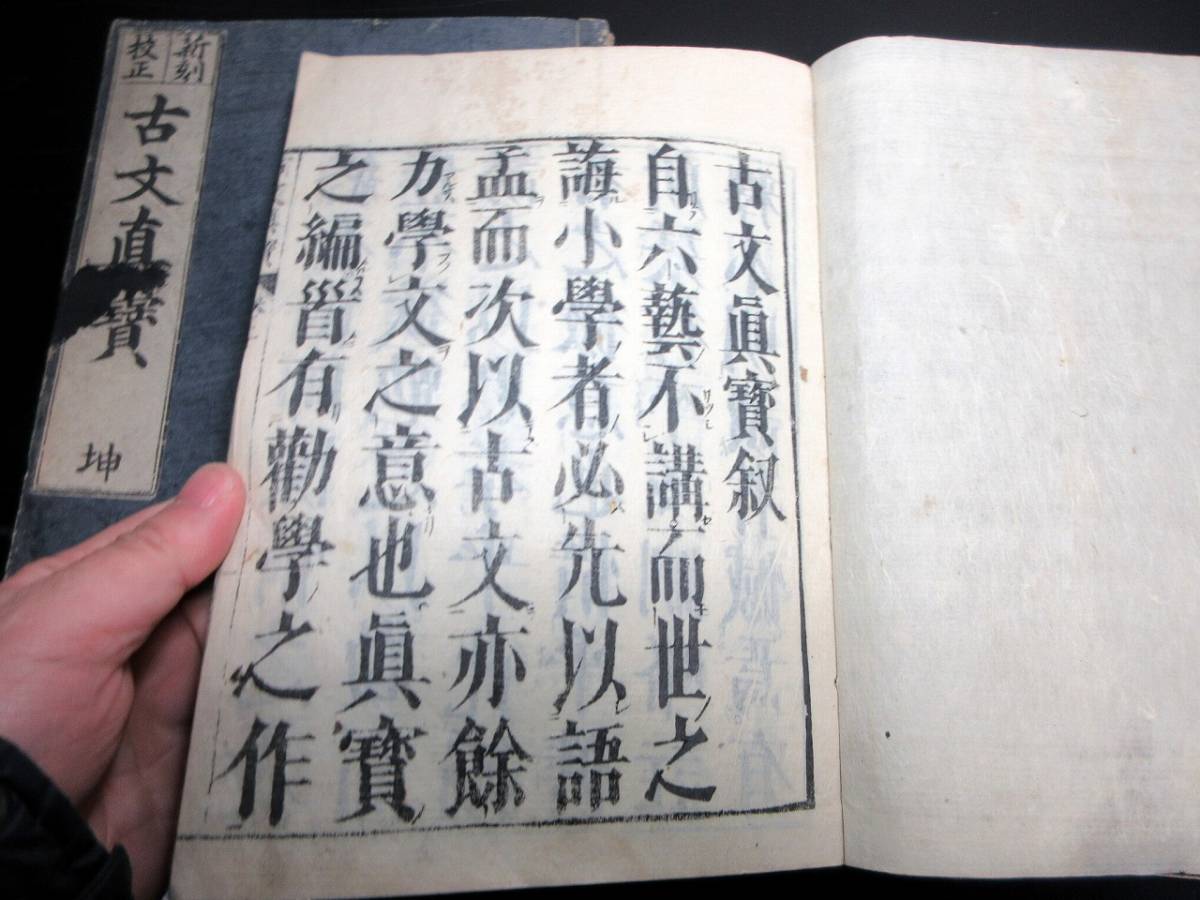 新刻
校正
古文真寳
坤
古文眞寶叙
自六藝不講而世之
誨小學者必先以語
孟而次以古文亦餘
力學文之意也眞寶
之編首有勸學之作